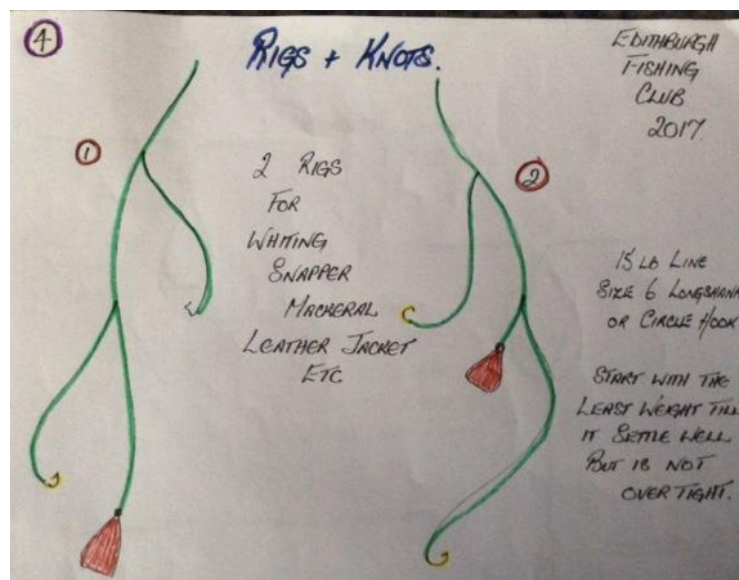 4
RIGS + KNOTS.
EDITHBURGH
FISHING
CLUB
2017.
1
2 RIGS
FOR
WHITING
SNAPPER
MACKERAL
LEATHER JACKET
ETC
2
15 LB LINE
SIZE 6 LONGSHANK
OR CIRCLE HOOK
START WITH THE
LEAST WEIGHT TILL
IT SETTLE WELL
BUT IS NOT
OVER TIGHT.